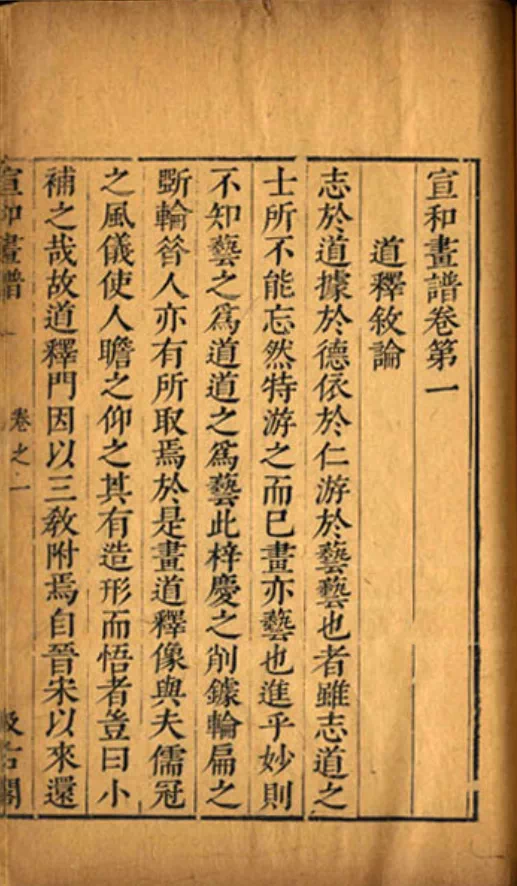 宣和畫譜卷第一
道釋敘論
志於道據於德依於仁游於藝藝也者雖志道之
士所不能忘然特游之而已畫亦藝也進乎妙則
不知藝之爲道道之爲藝此梓慶之削鐻輪扁之
斲輪昝人亦有所取焉於是畫道釋像與夫儒冠
之風儀使人瞻之仰之其有造形而悟者豈曰小
補之哉故道釋門因以三教附焉自晉宋以來還
宣和畫譜
卷之一
汲古閣